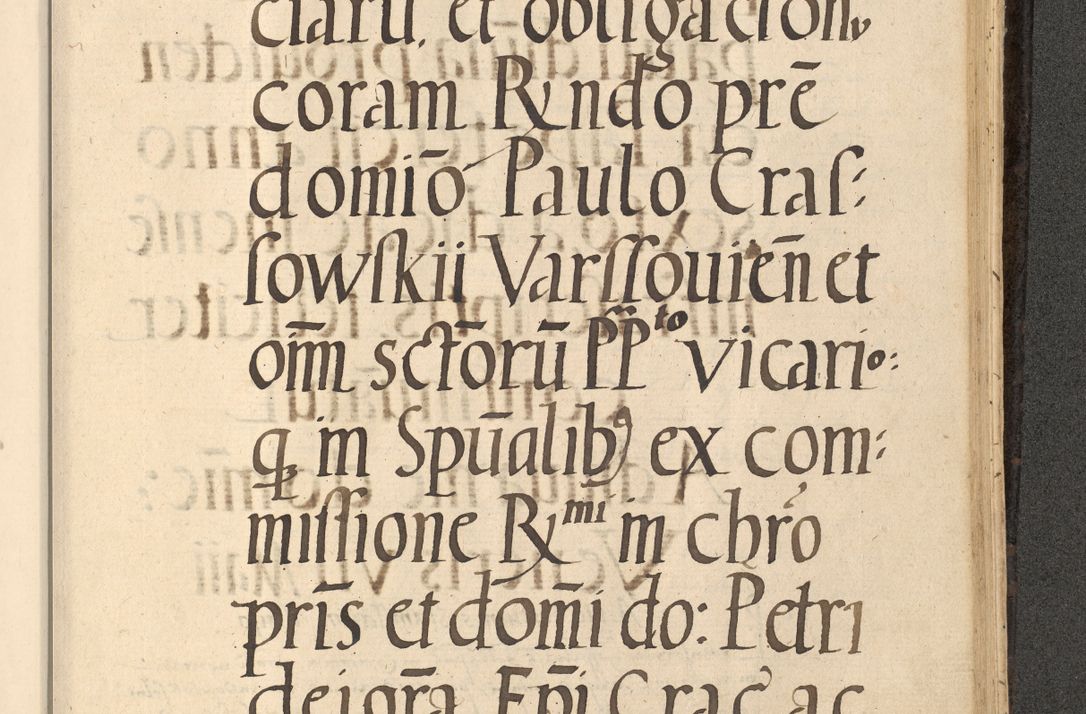 claru. et obligacionu
coram Rndo prē
domiō Paulo Craſ:
ſowſkii Varſſouiēn et
oīm sctōrū PP^to vicario:
q; in Spūalib9 ex com:
miſſione R^mi in chro
prīs et dōmi do: Petri
dei gr̄a Ep̄i Crac̄ ac